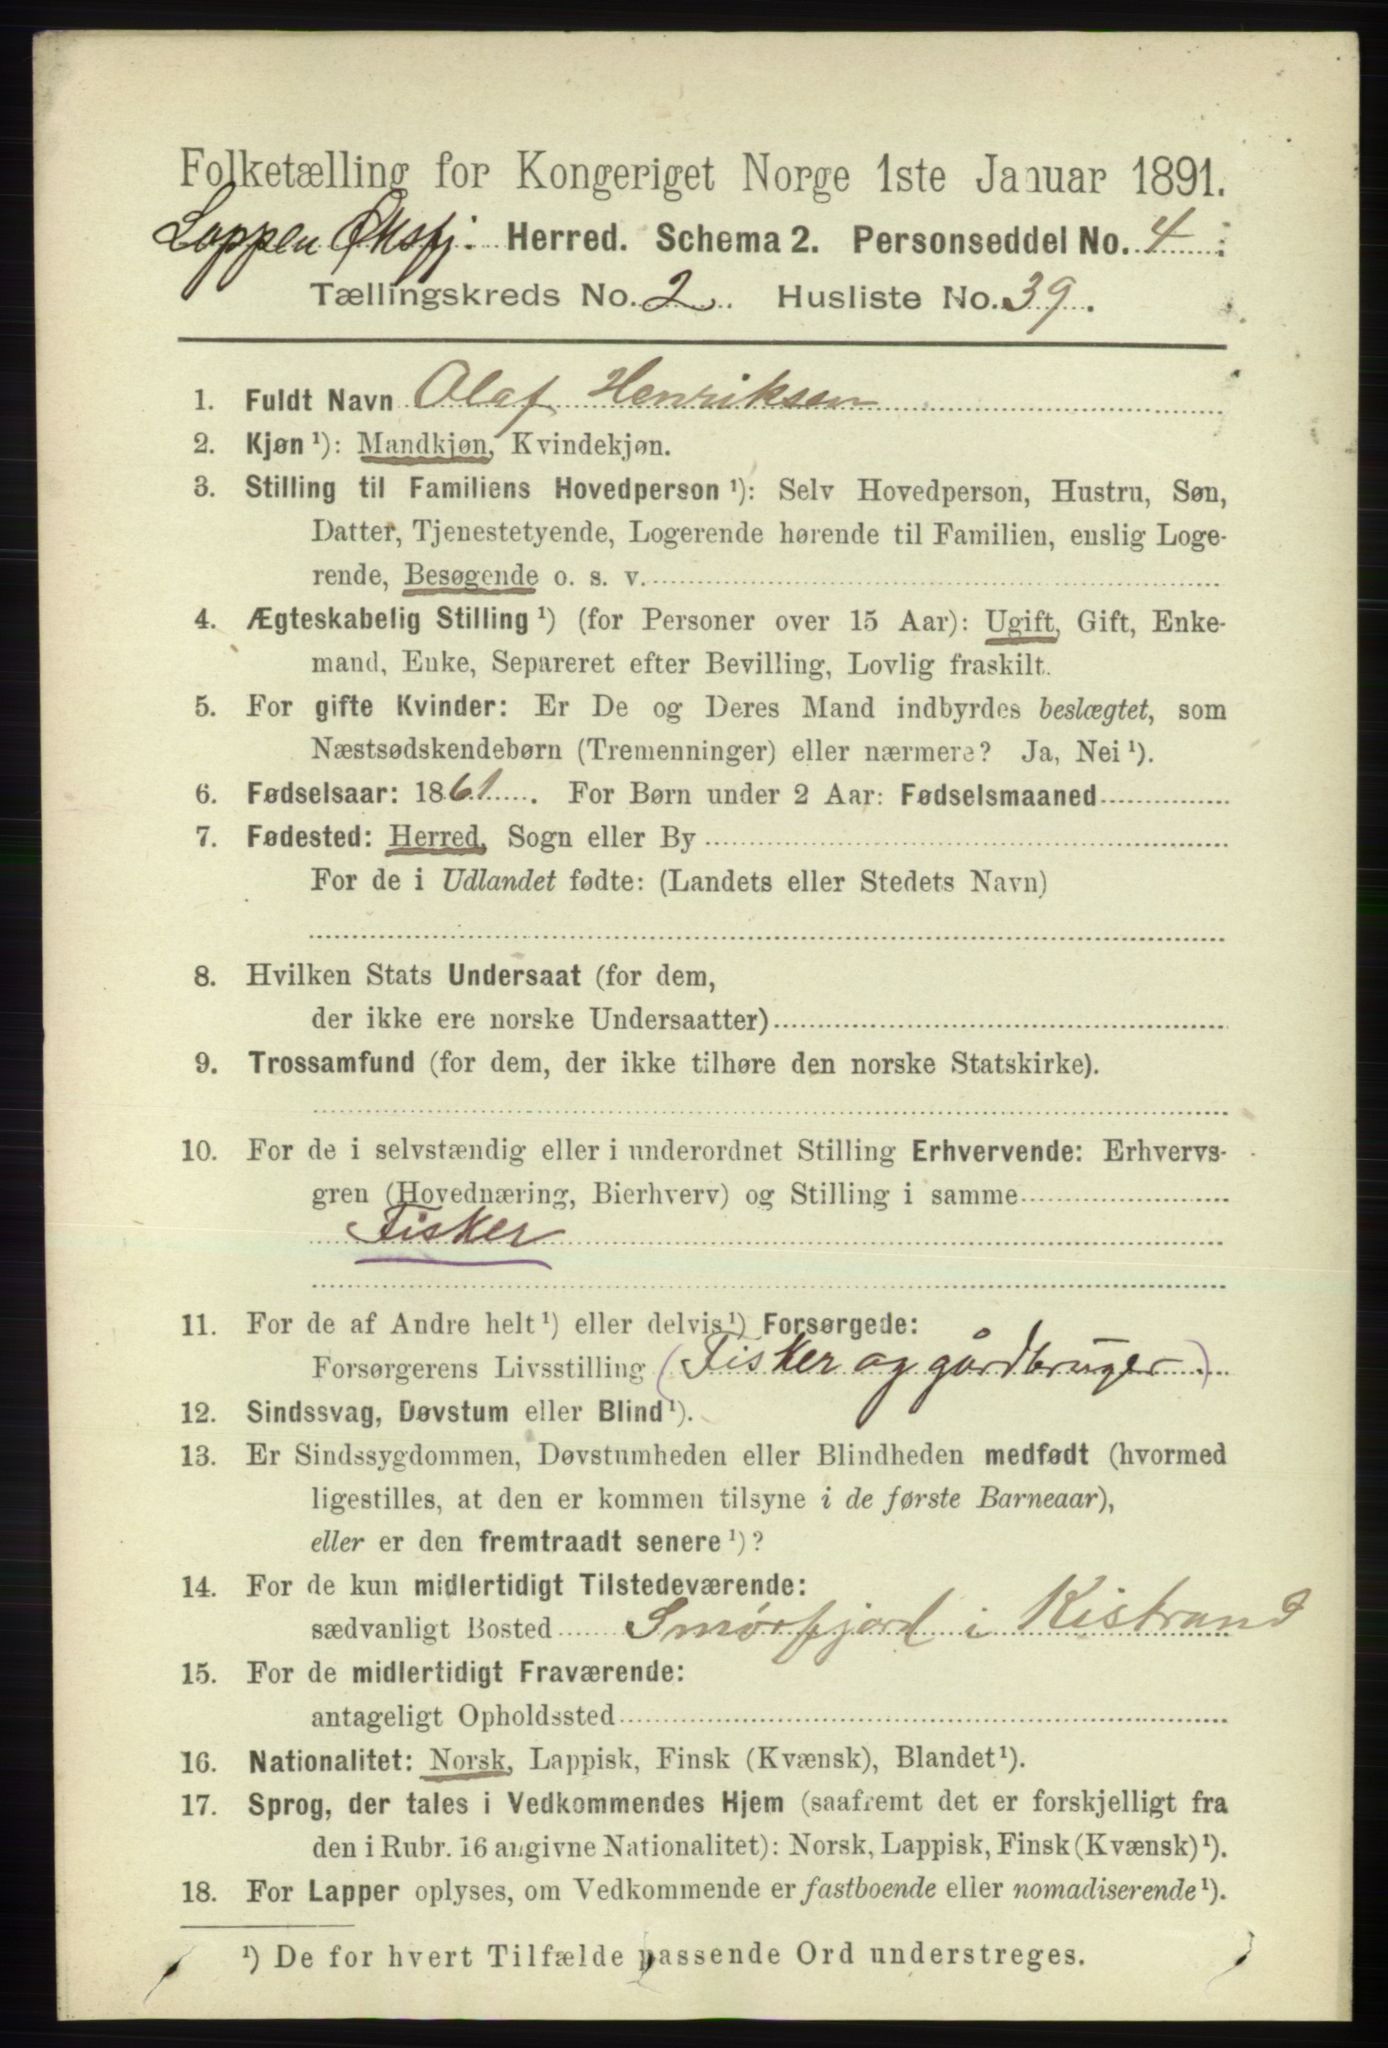 Folketælling for Kongeriget Norge 1ste Januar 1891.
Loppen Øksfj. Herred. Schema 2. Personseddel No. 4
Tællingskreds No. 2. Husliste No. 39.
1. Fuldt Navn Olaf Henriksen
2. Kjøn ¹): Mandkjøn, Kvindekjøn.
3. Stilling til Familiens Hovedperson ¹): Selv Hovedperson, Hustru, Søn,
Datter, Tjenestetyende, Logerende hørende til Familien, enslig Loge-
rende, Besøgende o. s. v.
4. Ægteskabelig Stilling ¹) (for Personer over 15 Aar): Ugift, Gift, Enke-
mand, Enke, Separeret efter Bevilling, Lovlig fraskilt.
5. For gifte Kvinder: Er De og Deres Mand indbyrdes beslægtet, som
Næstsødskendebørn (Tremenninger) eller nærmere? Ja, Nei ¹).
6. Fødselsaar: 1861. For Børn under 2 Aar: Fødselsmaaned
7. Fødested: Herred, Sogn eller By
For de i Udlandet fødte: (Landets eller Stedets Navn)
8. Hvilken Stats Undersaat (for dem,
der ikke ere norske Undersaatter)
9. Trossamfund (for dem, der ikke tilhøre den norske Statskirke).
10. For de i selvstændig eller i underordnet Stilling Erhvervende: Erhvervs-
gren (Hovednæring, Bierhverv) og Stilling i samme
Fisker
11. For de af Andre helt ¹) eller delvis ¹) Forsørgede:
Forsørgerens Livsstilling (Fisker og gårdbruger)
12. Sindssvag, Døvstum eller Blind ¹).
13. Er Sindssygdommen, Døvstumheden eller Blindheden medfødt (hvormed
ligestilles, at den er kommen tilsyne i de første Barneaar),
eller er den fremtraadt senere ¹)?
14. For de kun midlertidigt Tilstedeværende:
sædvanligt Bosted Smørfjord i Kistrand
15. For de midlertidigt Fraværende:
antageligt Opholdssted
16. Nationalitet: Norsk, Lappisk, Finsk (Kvænsk), Blandet ¹).
17. Sprog, der tales i Vedkommendes Hjem (saafremt det er forskjelligt fra
den i Rubr. 16 angivne Nationalitet): Norsk, Lappisk, Finsk (Kvænsk) ¹).
18. For Lapper oplyses, om Vedkommende er fastboende eller nomadiserende ¹).
¹) De for hvert Tilfælde passende Ord understreges.